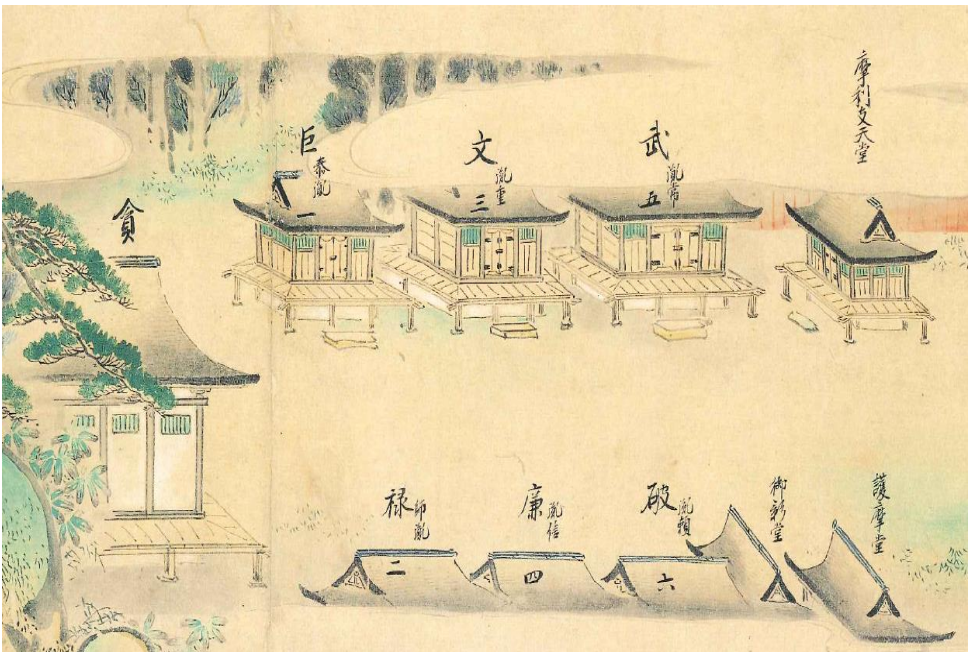 摩利支天堂
武
胤常
五
文
胤重
三
巨
泰胤
一
貪
護摩堂
御影堂
破
胤頼
六
廉
胤信
四
禄
師胤
二